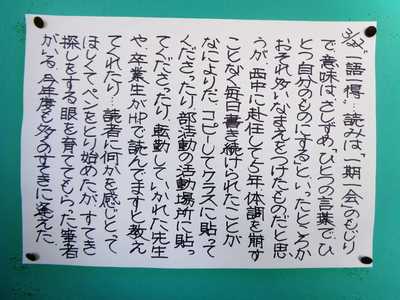 "一語一得…読みは、一期一会のもじり
で、意味は、さしずめ、ひとつの言葉でひ
とつ自分のものにする、といったところか
おそれ多いなまえをつけたものだと思
うが、西中に赴任して5年体調を崩す
ことなく毎日書き続けられたことが
なによりだ。コピーしてクラスに貼って
くださったり、部活動の活動場所に貼っ
てくださったり、転勤していかれた先生
や、卒業生がHPで読んでますと教え
てくれたり…読者に何かを感じとって
ほしくてペンをとり始めたが、すてき
探しをする眼を育ててもらった筆者
がいる。今年度も多くのすてきに逢えた。